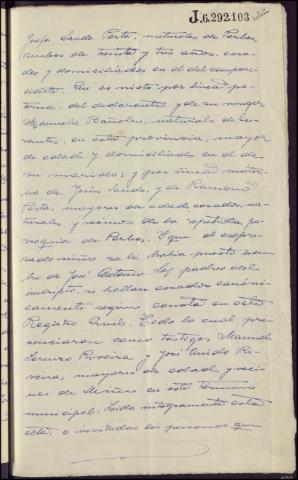 J.6.292.103
Josefa Saude Porta, naturales de Perbes,
ambos de treinta y tres años, casa-
dos y domiciliados en el del compare-
ciente. Que es nieto por linea pa-
terna, del declarante y de su mujer
Manuela natural de
en esta provincia, mayor
de edad y domiciliada en el de
su marido; y por linea mater-
na de Jesús Saude, y de Ramona
Porta, mayores de edad, casados, na-
turales y vecinos de la repetida pa-
rroquia de Perbes. Y que el expre-
sado niño se le había puesto nom-
bre de José Antonio. Los padres del
inscripto, se hallan casados canóni-
camente según consta en este
Registro Civil. Todo lo cual pre-
senciaron como testigos Manuel
Lorenzo Pereira y José
mayores de edad, y veci-
nos de Miño en este término
municipal. Leída integramente esta
acta, e invitadas las personas que